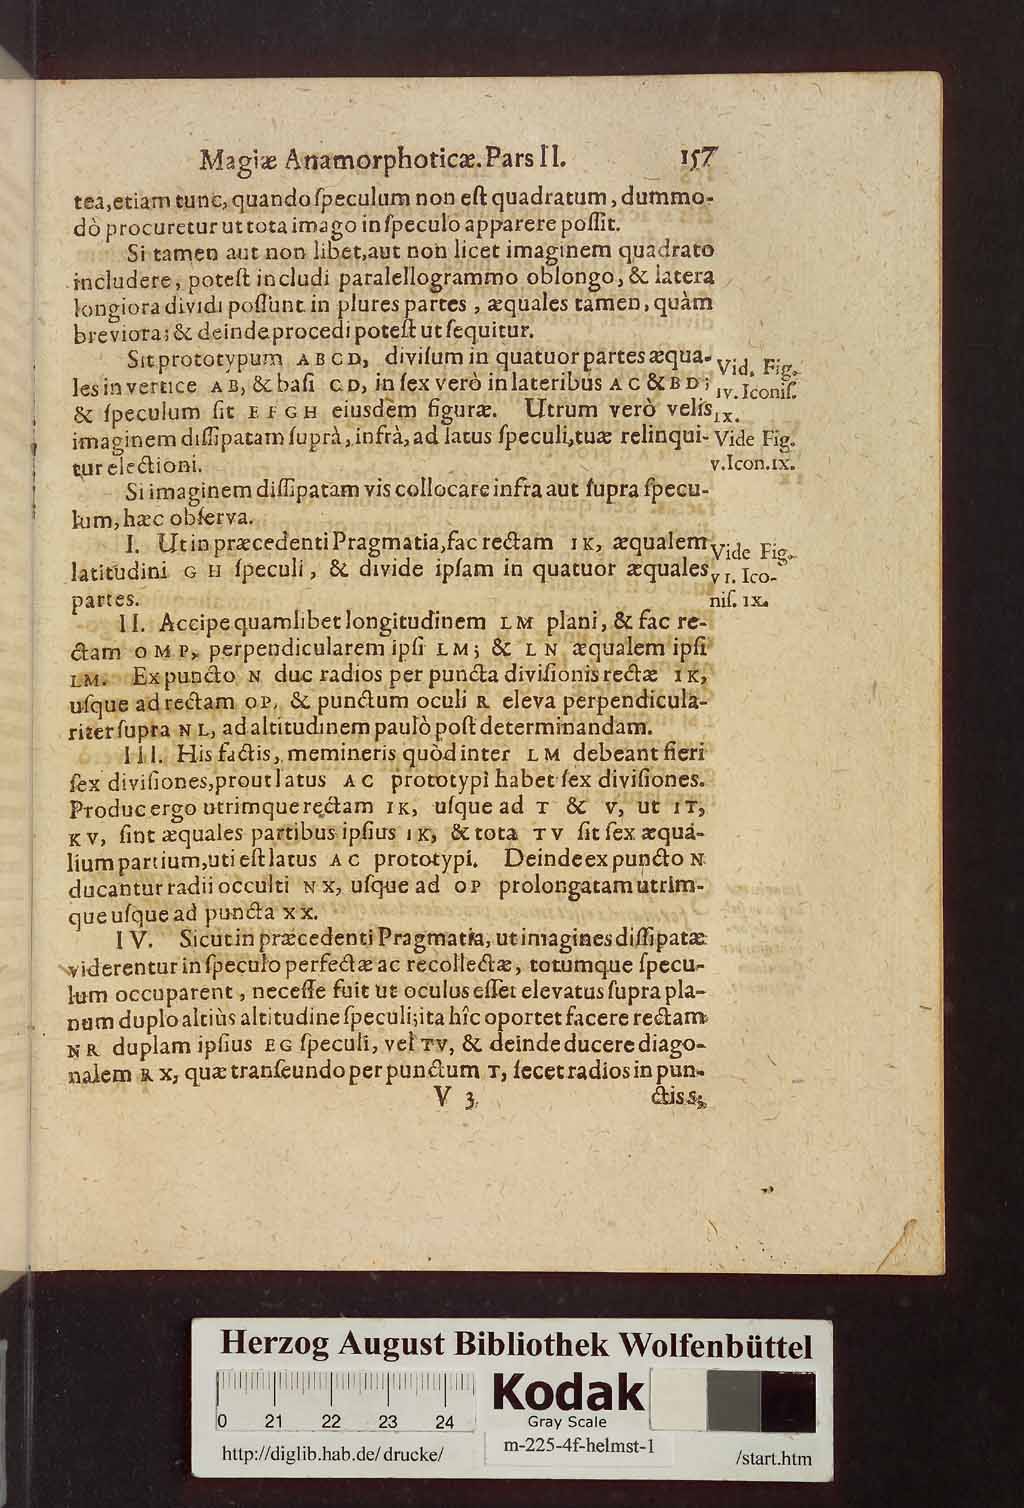 Magiæ Anamorphoticæ. Pars II. 157
tea, etiam tunc, quando ſpeculum non eſt quadratum, dummo-
dò procuretur ut tota imago in ſpeculo apparere poſſit.
Si tamen aut non libet, aut non licet imaginem quadrato
includere, poteſt includi paralellogrammo oblongo, & latera
longiora dividi poſſunt in plures partes, æquales tamen, quàm
breviora; & deinde procedi poteſt ut ſequitur.
Sit prototypum ABCD, diviſum in quatuor partes æqua-
les in vertice AB, & baſi CD, in ſex verò in lateribus AC & BD;
& ſpeculum ſit EFGH eiusdem figuræ. Utrum verò velis
imaginem diſſipatam ſuprà, infrà, ad latus ſpeculi, tuæ relinqui-
tur electioni.
Vid. Fig.
IV. Iconiſ.
IX.
Vide Fig.
V. Icon. IX.
Si imaginem diſſipatam vis collocare infra aut ſupra ſpecu-
lum, hæc obſerva.
I. Ut in præcedenti Pragmatia, fac rectam IK, æqualem
latitudini GH ſpeculi, & divide ipſam in quatuor æquales
partes.
Vide Fig.
VI. Ico-
niſ. IX.
II. Accipe quamlibet longitudinem LM plani, & fac re-
ctam OMP, perpendicularem ipſi LM; & LN æqualem ipſi
LM. Ex puncto N duc radios per puncta diviſionis rectæ IK,
uſque ad rectam OP, & punctum oculi R eleva perpendicula-
riter ſupra NL, ad altitudinem paulò poſt determinandam.
III. His factis, memineris quòd inter LM debeant fieri
ſex diviſiones, prout latus AC prototypi habet ſex diviſiones.
Produc ergo utrimque rectam IK, uſque ad T & V, ut IT,
KV, ſint æquales partibus ipſius IK, & tota TV ſit ſex æqua-
lium partium, uti eſt latus AC prototypi. Deinde ex puncto N
ducantur radii occulti NX, uſque ad OP prolongatam utrim-
que uſque ad puncta XX.
IV. Sicut in præcedenti Pragmatia, ut imagines diſſipatæ
viderentur in ſpeculo perfectæ ac recollectæ, totumque ſpecu-
lum occuparent, neceſſe fuit ut oculus eſſet elevatus ſupra pla-
num duplo altiùs altitudine ſpeculi; ita hîc oportet facere rectam
NR duplam ipſius EG ſpeculi, vel TV, & deinde ducere diago-
nalem RX, quæ tranſeundo per punctum T, ſecet radios in pun-
V 3 ctis S;
Herzog August Bibliothek Wolfenbüttel
0 21 22 23 24
Kodak
Gray Scale
http://diglib.hab.de/drucke/
m-225-4f-helmst-1
/start.htm